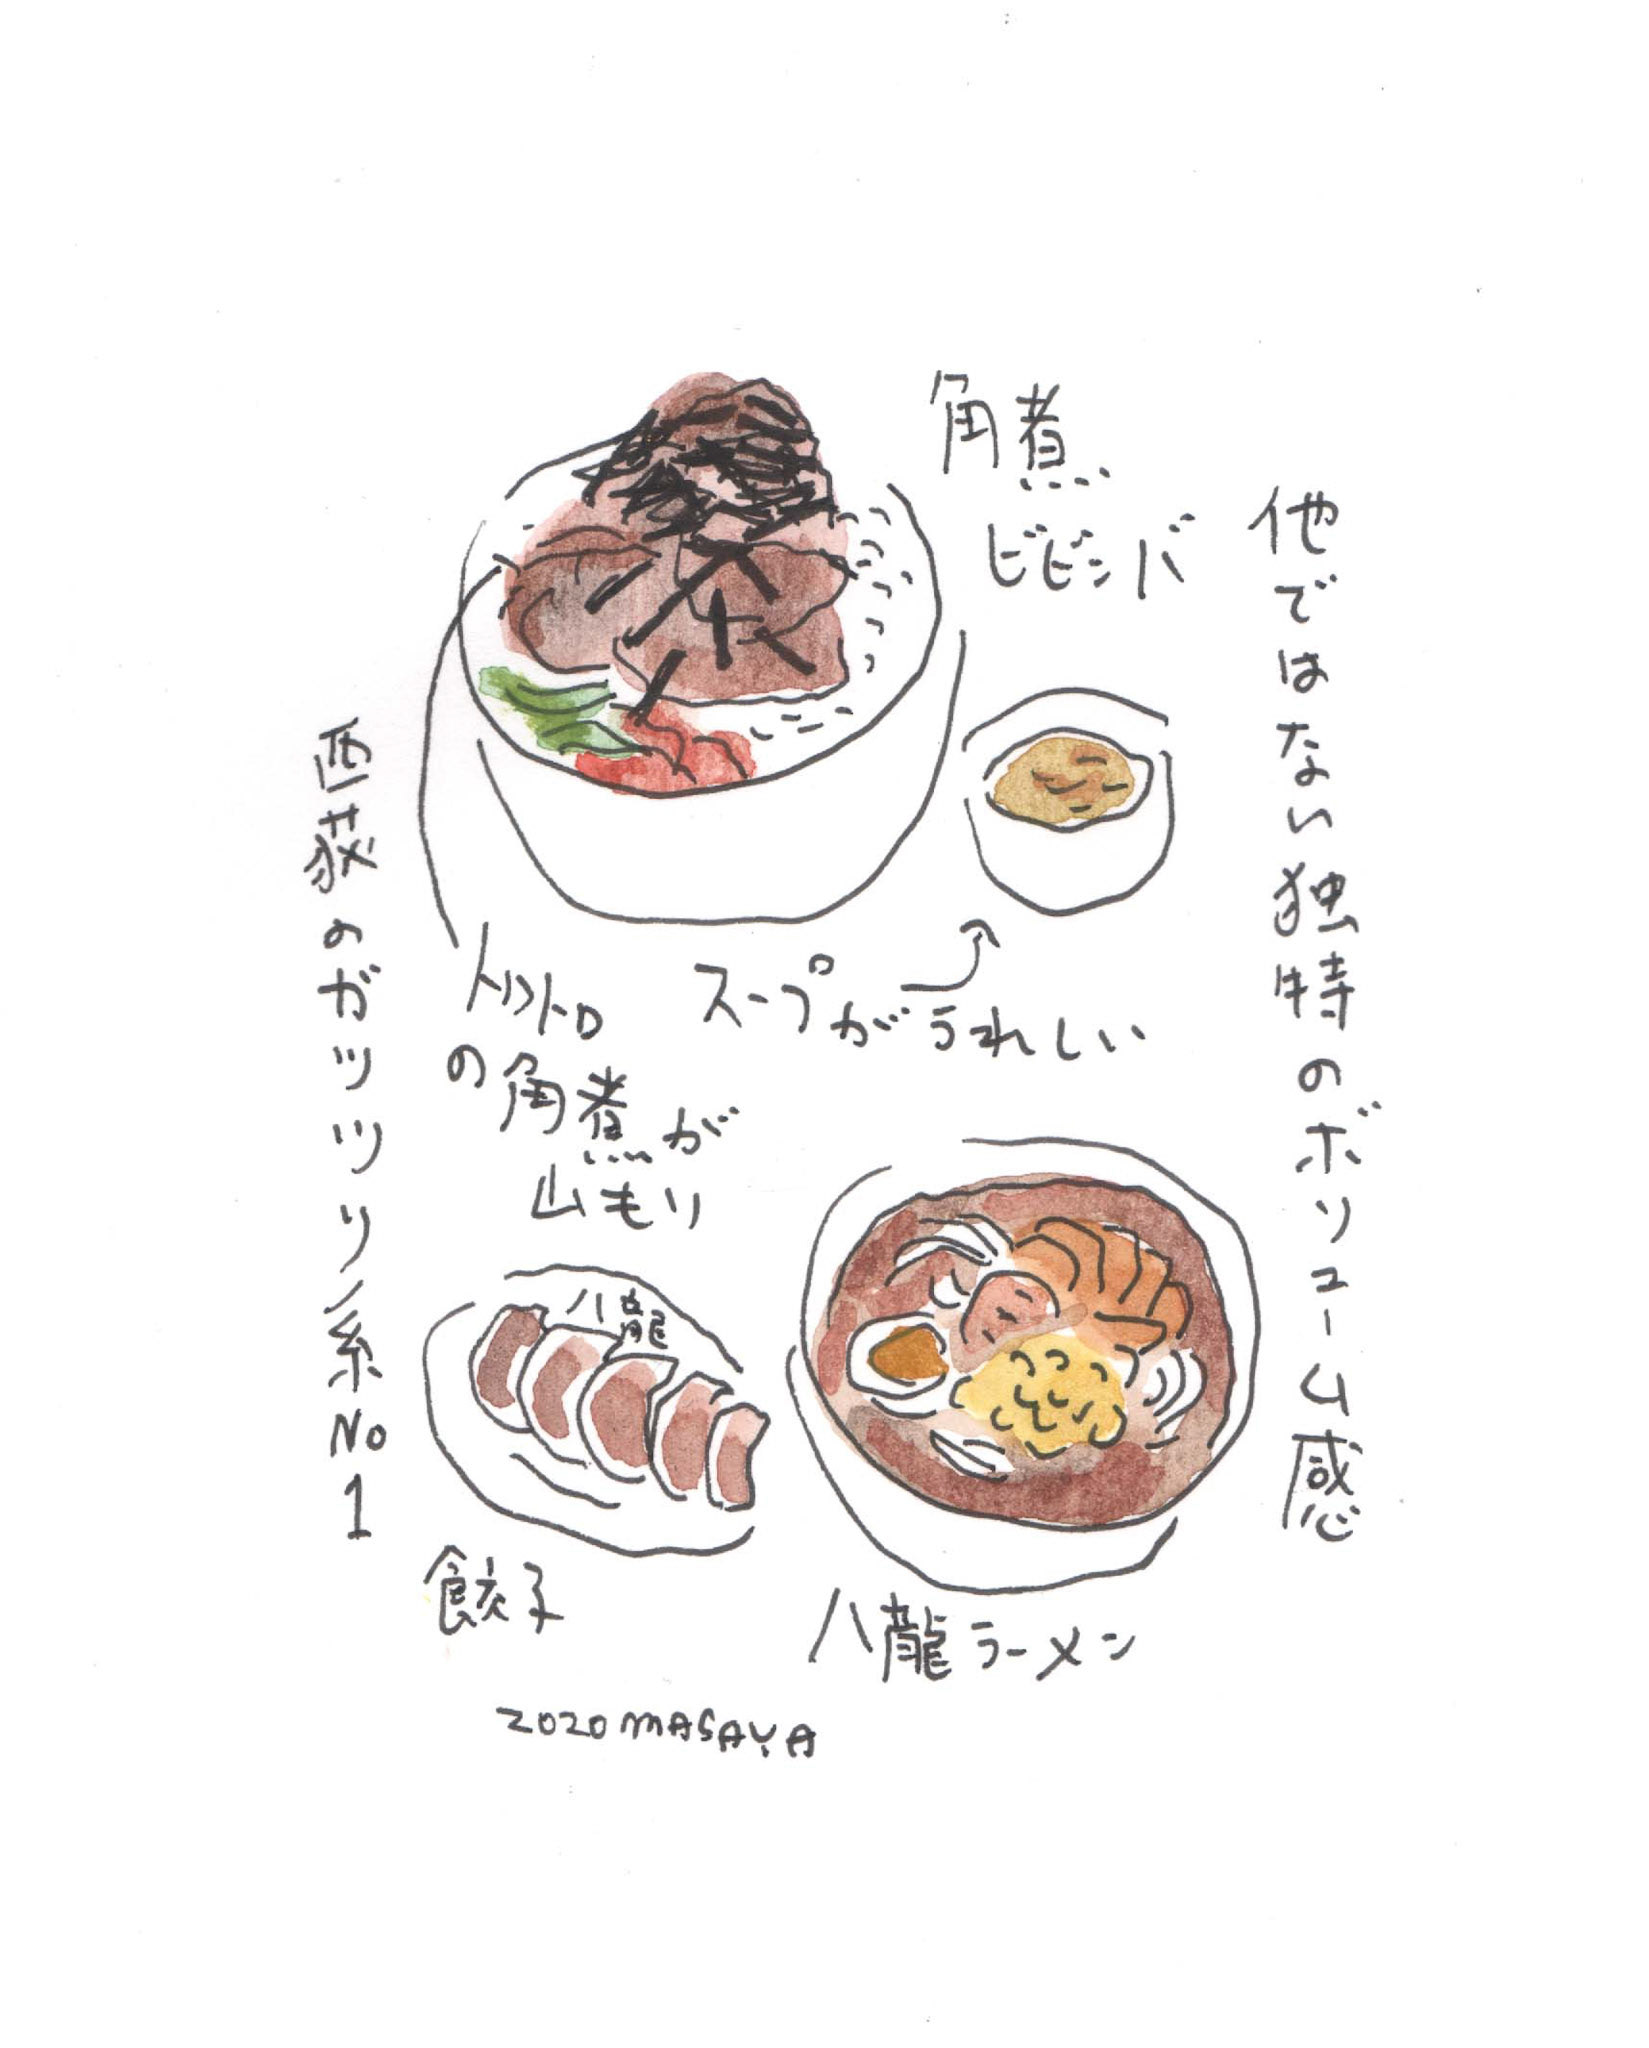 角煮
ビビンバ
他ではない独特のボリューム感
スープがうれしい
トロトロ
の角煮が
山もり
西荻のガッツリ系No1
八龍
餃子
八龍ラーメン
2020 MASAYA